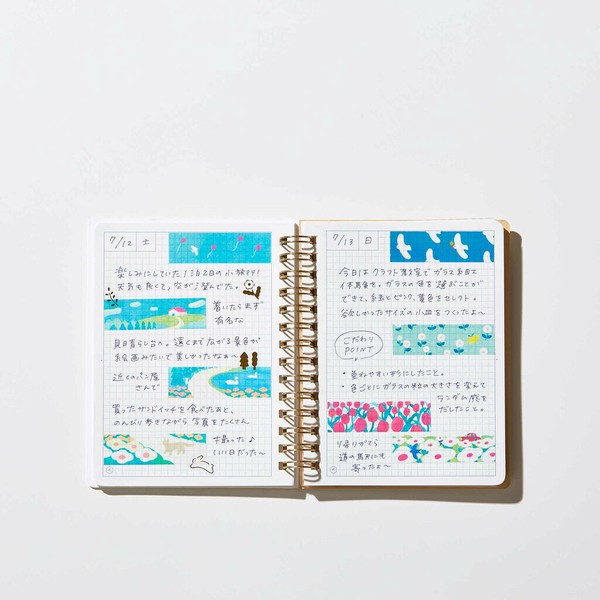 7/12 土
楽しみにしていた1泊2日の小旅行!
天気も良くて、空が澄んでた。
着いたらまず
有名な
見晴らし台へ。遠くまで広がる景色が
絵画みたいで美しかったなぁ〜
近くのパン屋
さんで
買ったサンドイッチを食べたあと、
のんびり歩きながら写真をたくさん
撮った♪
いい1日だった〜
7/13 日
今日は クラフト教室で ガラス細工
体験を。ガラスの色を選ぶことが
できて、緑とピンク、黄色をセレクト。
欲しかったサイズの小皿をつくったよ〜
こだわり
POINT
・重ねやすい形にしたこと。
・色ごとにガラスの粒の大きさを変えて
ランダム感を
だしたこと。
帰りがてら
道の駅にも
寄ったよ〜